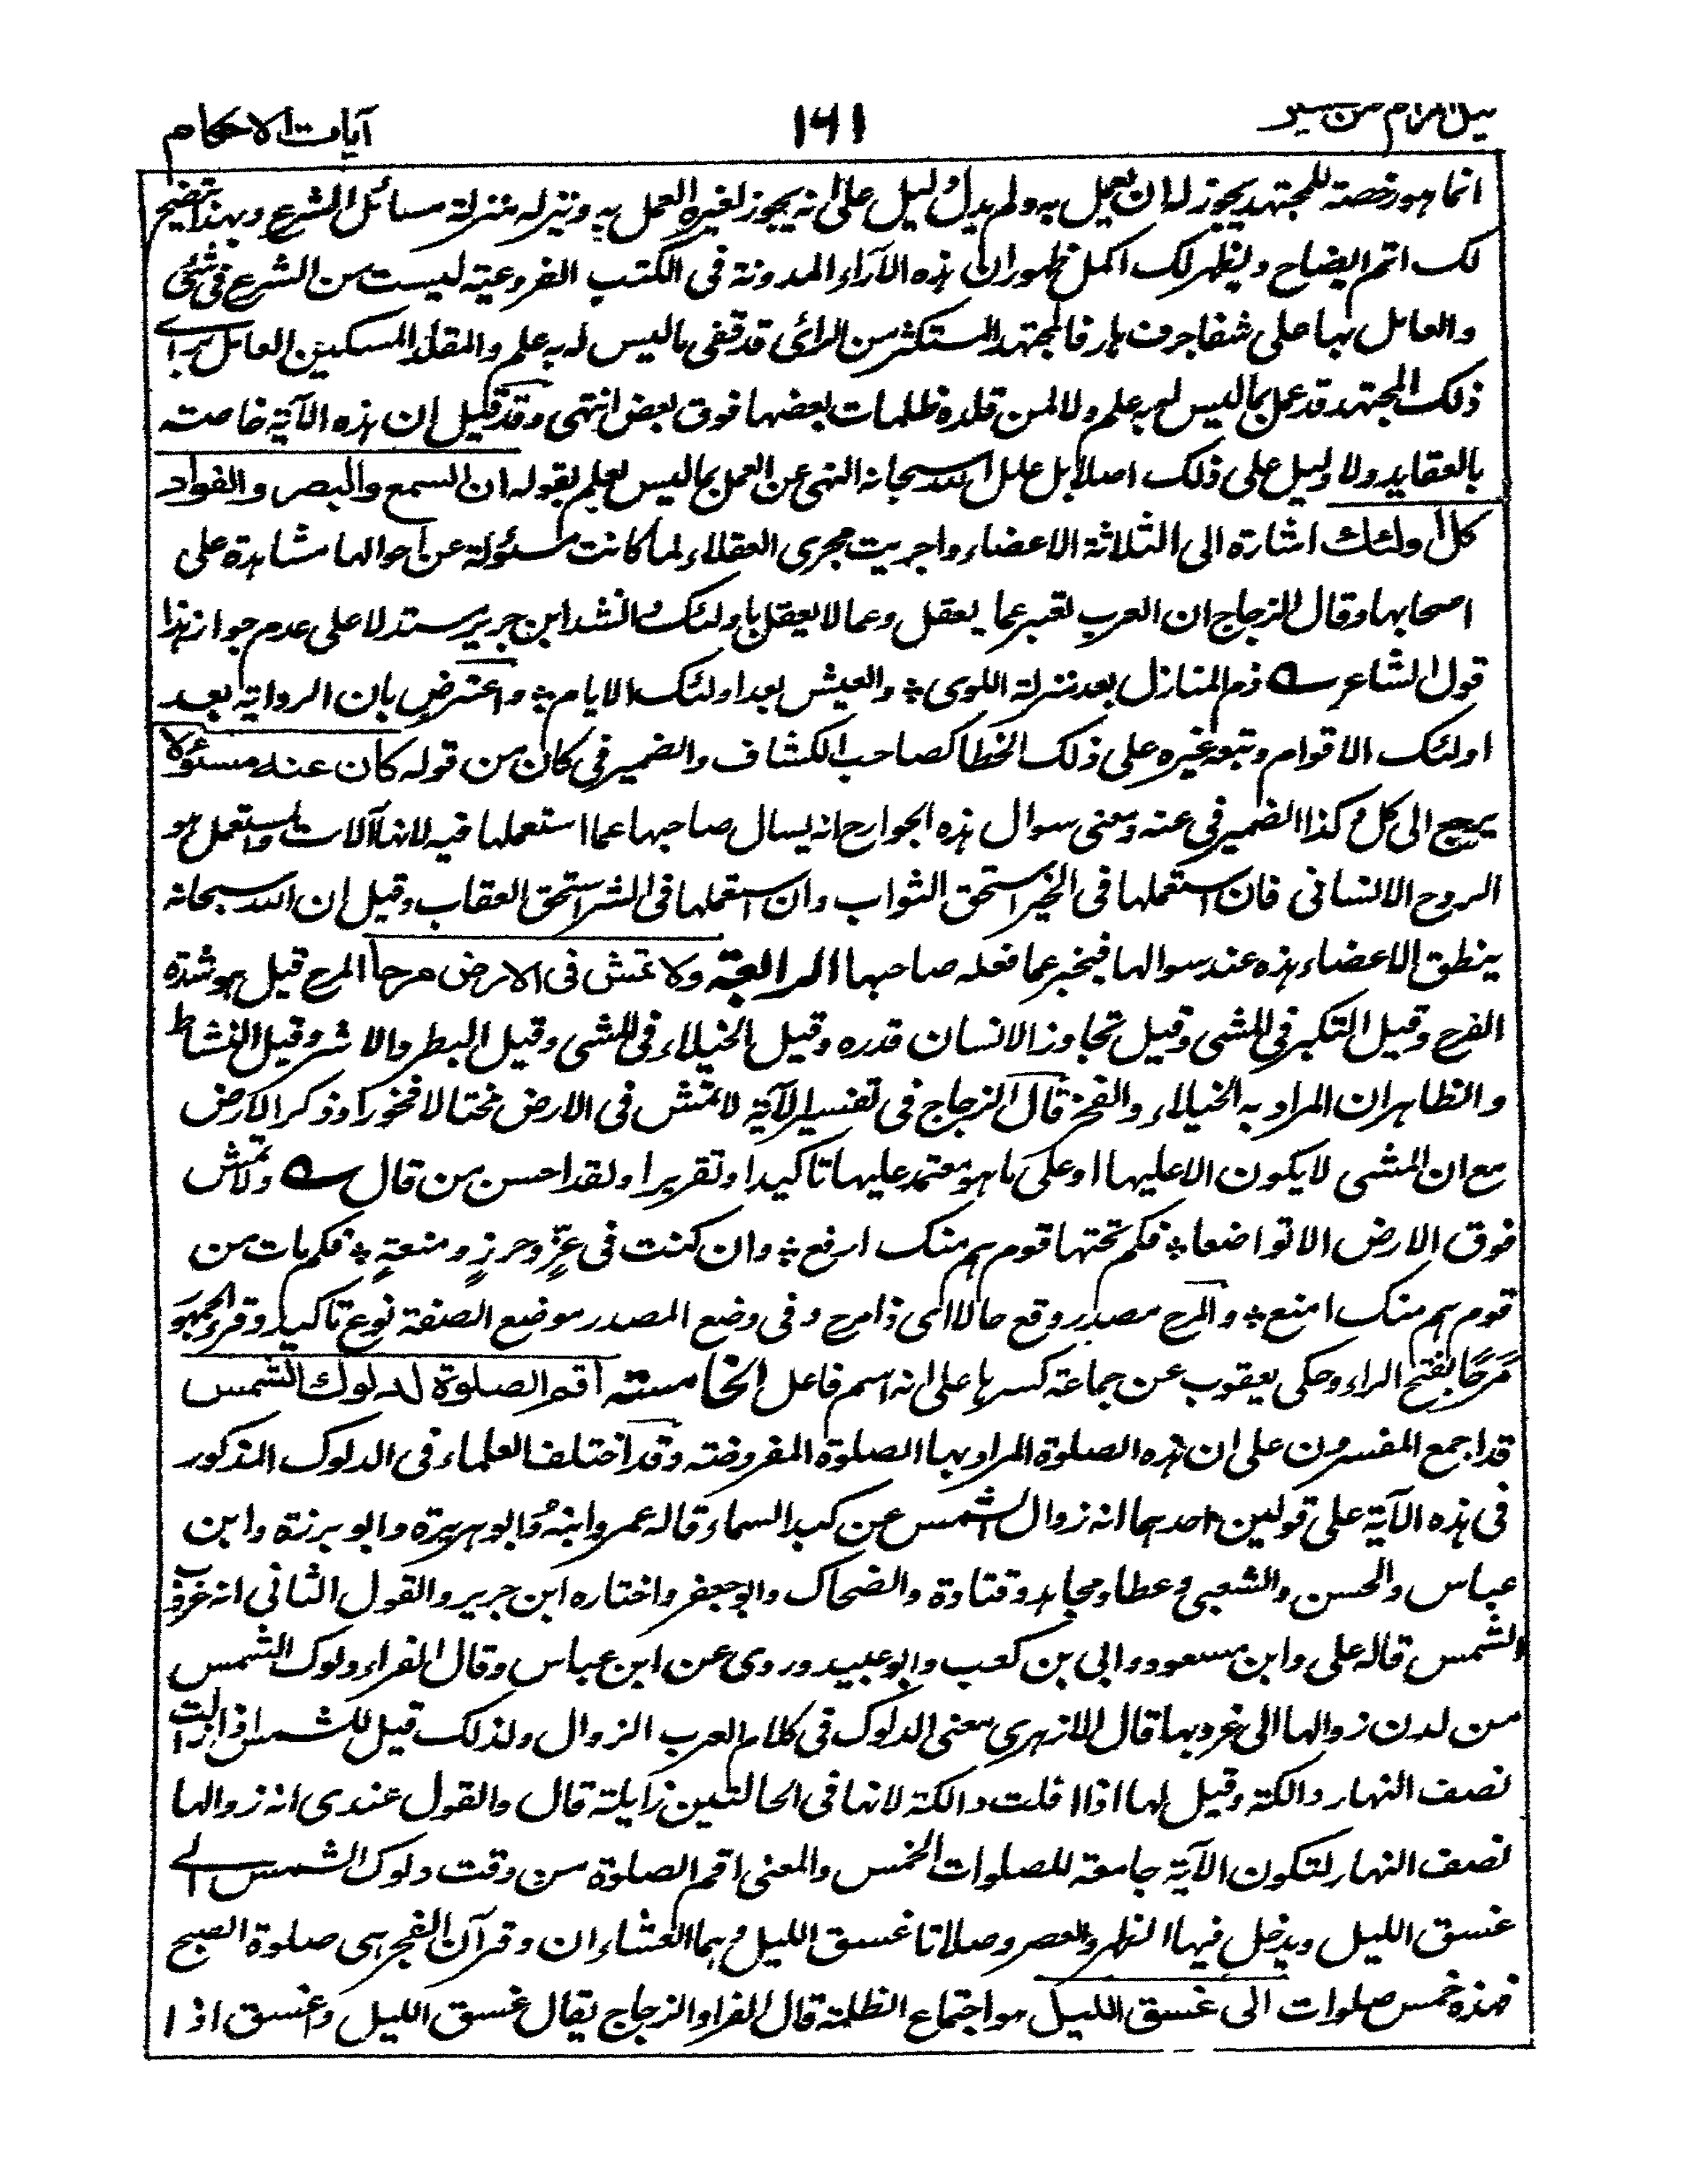 نيل المرام من تفسير ۱۶۱ آيات الاحكام
انما هو رخصة للمجتهد يجوز له ان يعمل به ولم يدل دليل على انه يجوز لغيره العمل به وتنزله منزلة مسائل الشرع وبهذا يتضح
لك اتم ايضاح ويظهر لك اكمل ظهور ان هذه الآراء المدونة فى الكتب الفروعية ليست من الشرع فى شئ
والعامل بها على شفا جرف هار فالمجتهد المستكثر من الرأى قد قفى ما ليس له به علم والمقلد المسكين العامل برأى
ذلك المجتهد قد عمل بما ليس له به علم ولا لمن قلده ظلمات بعضها فوق بعض انتهى وقد قيل ان هذه الآية خاصة
بالعقايد ولا دليل على ذلك اصلا بل علل الله سبحانه النهى عن العمل بما ليس بعلم بقوله ان السمع والبصر والفواد
كل اولئك اشارة الى الثلاثة الاعضاء واجريت مجرى العقلاء لما كانت مسئولة عن احوالها شاهدة على
اصحابها وقال الزجاج ان العرب تعبر عما يعقل وعما لا يعقل باولئك وانشد ابن جرير مستدلا على عدم جواز هذا
قول الشاعر ؎ ذم المنازل بعد منزلة اللوى ؞ والعيش بعد اولئك الايام ؞ واعترض بان الرواية بعد
اولئك الاقوام وتبعه غيره على ذلك الخطا كصاحب الكشاف والضمير فى كان من قوله كان عنه مسئولا
يرجع الى كل وكذا الضمير فى عنه ومعنى سوال هذه الجوارح انه يسال صاحبها عما استعملها فيه لانها آلات والمستعمل هو
الروح الانسانى فان استعملها فى الخير استحق الثواب وان استعملها فى الشر استحق العقاب وقيل ان الله سبحانه
ينطق الاعضاء هذه عند سوالها فيخبر عما فعله صاحبها الرابعة ولا تمش فى الارض مرحا المرح قيل هو شدة
الفرح وقيل التكبر فى المشى وقيل تجاوز الانسان قدره وقيل الخيلاء فى المشى وقيل البطر والاشر وقيل النشاط
والظاهر ان المراد به الخيلاء والفخر قال الزجاج فى تفسير الآية لا تمش فى الارض مختالا فخورا وذكر الارض
مع ان المشى لا يكون الا عليها او على ما هو معتمد عليها تاكيدا وتقريرا ولقد احسن من قال ؎ ولا تمش
فوق الارض الا تواضعا ؞ فكم تحتها قوم هم منك ارفع ؞ وان كنت فى عزٍّ وحرزٍ ومنعةٍ ؞ فكم مات من
قوم هم منك امنع ؞ والمرح مصدر وقع حالا اى ذا مرح وفى وضع المصدر موضع الصفة نوع تاكيد وقرء الجمهور
مَرَحًا بفتح الراء وحكى يعقوب عن جماعة كسرها على انه اسم فاعل الخامسة اقم الصلوة لدلوك الشمس
قد اجمع المفسرون على ان هذه الصلوة المراد بها الصلوة المفروضة وقد اختلف العلماء فى الدلوك المذكور
فى هذه الآية على قولين احدهما انه زوال الشمس عن كبد السماء قاله عمر وابنه وابو هريرة وابو برزة وابن
عباس والحسن والشعبى وعطا ومجاهد وقتادة والضحاك وابو جعفر واختاره ابن جرير والقول الثانى انه غروب
الشمس قاله على وابن مسعود وابى بن كعب وابو عبيد وروى عن ابن عباس وقال الفراء دلوك الشمس
من لدن زوالها الى غروبها قال الازهرى معنى الدلوك فى كلام العرب الزوال ولذلك قيل للشمس اذا زالت
نصف النهار دالكة وقيل لها اذا افلت دالكة لانها فى الحالتين زايلة قال والقول عندى انه زوالها
نصف النهار لتكون الآية جامعة للصلوات الخمس والمعنى اقم الصلوة من وقت دلوك الشمس الى
غسق الليل ويدخل فيها الظهر والعصر وصلاتا غسق الليل وهما العشاءان وقرآن الفجر هى صلوة الصبح
فهذه خمس صلوات الى غسق الليل هو اجتماع الظلمة قال الفراء والزجاج يقال غسق الليل واغسق اذا